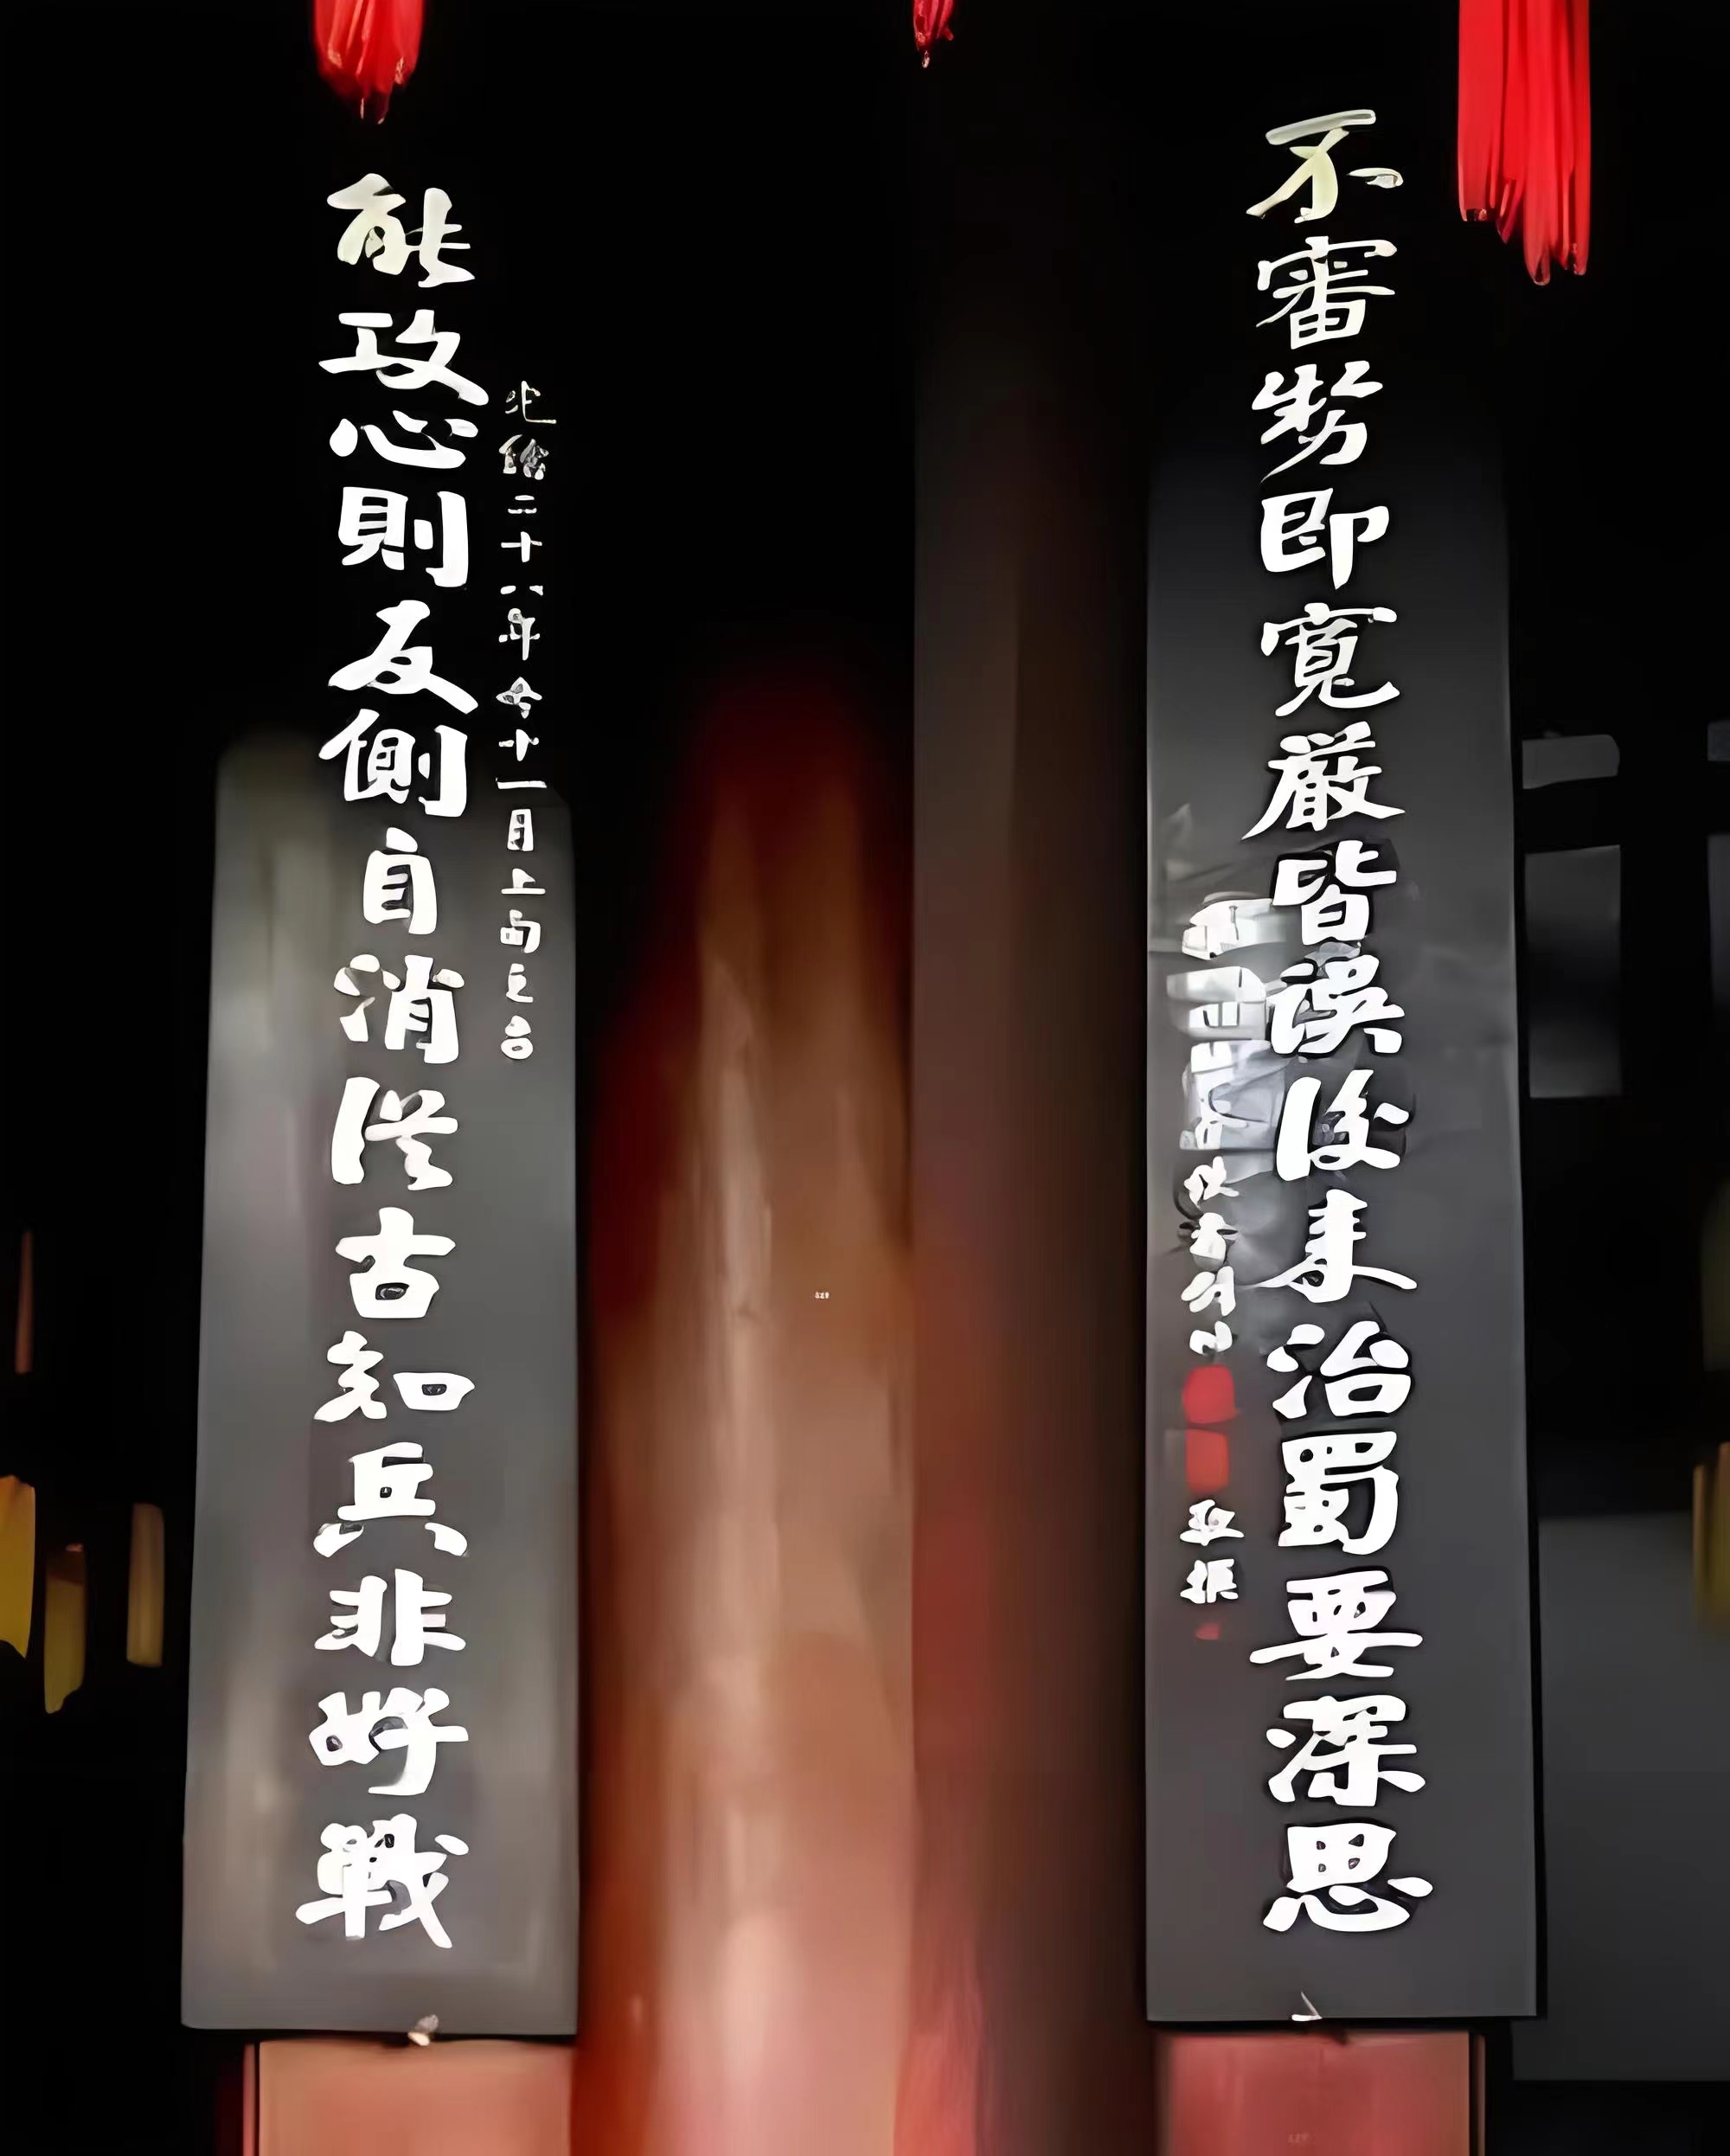 能攻心則反側自消從古知兵非好戰
光緒二十八年冬十一月上旬之吉
不審勢即寬嚴皆誤後來治蜀要深思